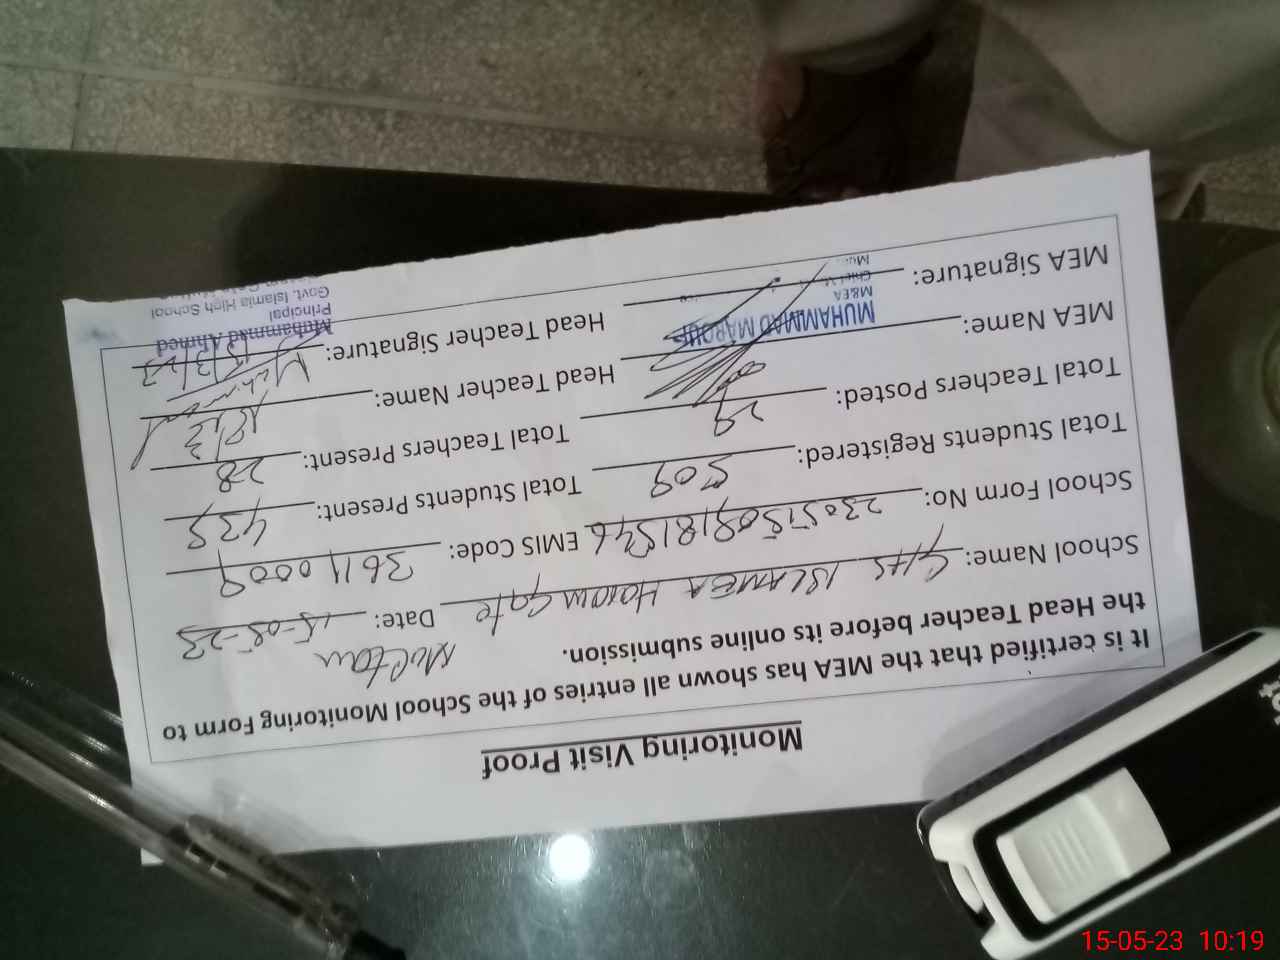 Monitoring Visit Proof
It is certified that the MEA has shown all entries of the School Monitoring Form to
the Head Teacher before its online submission.
Multan
School Name: GHS ISLAMEA Haram Gate Date: 15-05-23
School Form No: EMIS Code: 36110009
Total Students Registered: 509 Total Students Present: 439
Total Teachers Posted: 29 Total Teachers Present: 28
MEA Name: Head Teacher Name:
MUHAMMAD MAROUF
M&EA
MEA Signature: Head Teacher Signature:
Muhammad Ahmed
Principal
Govt. Islamia High School
15-05-23 10:19